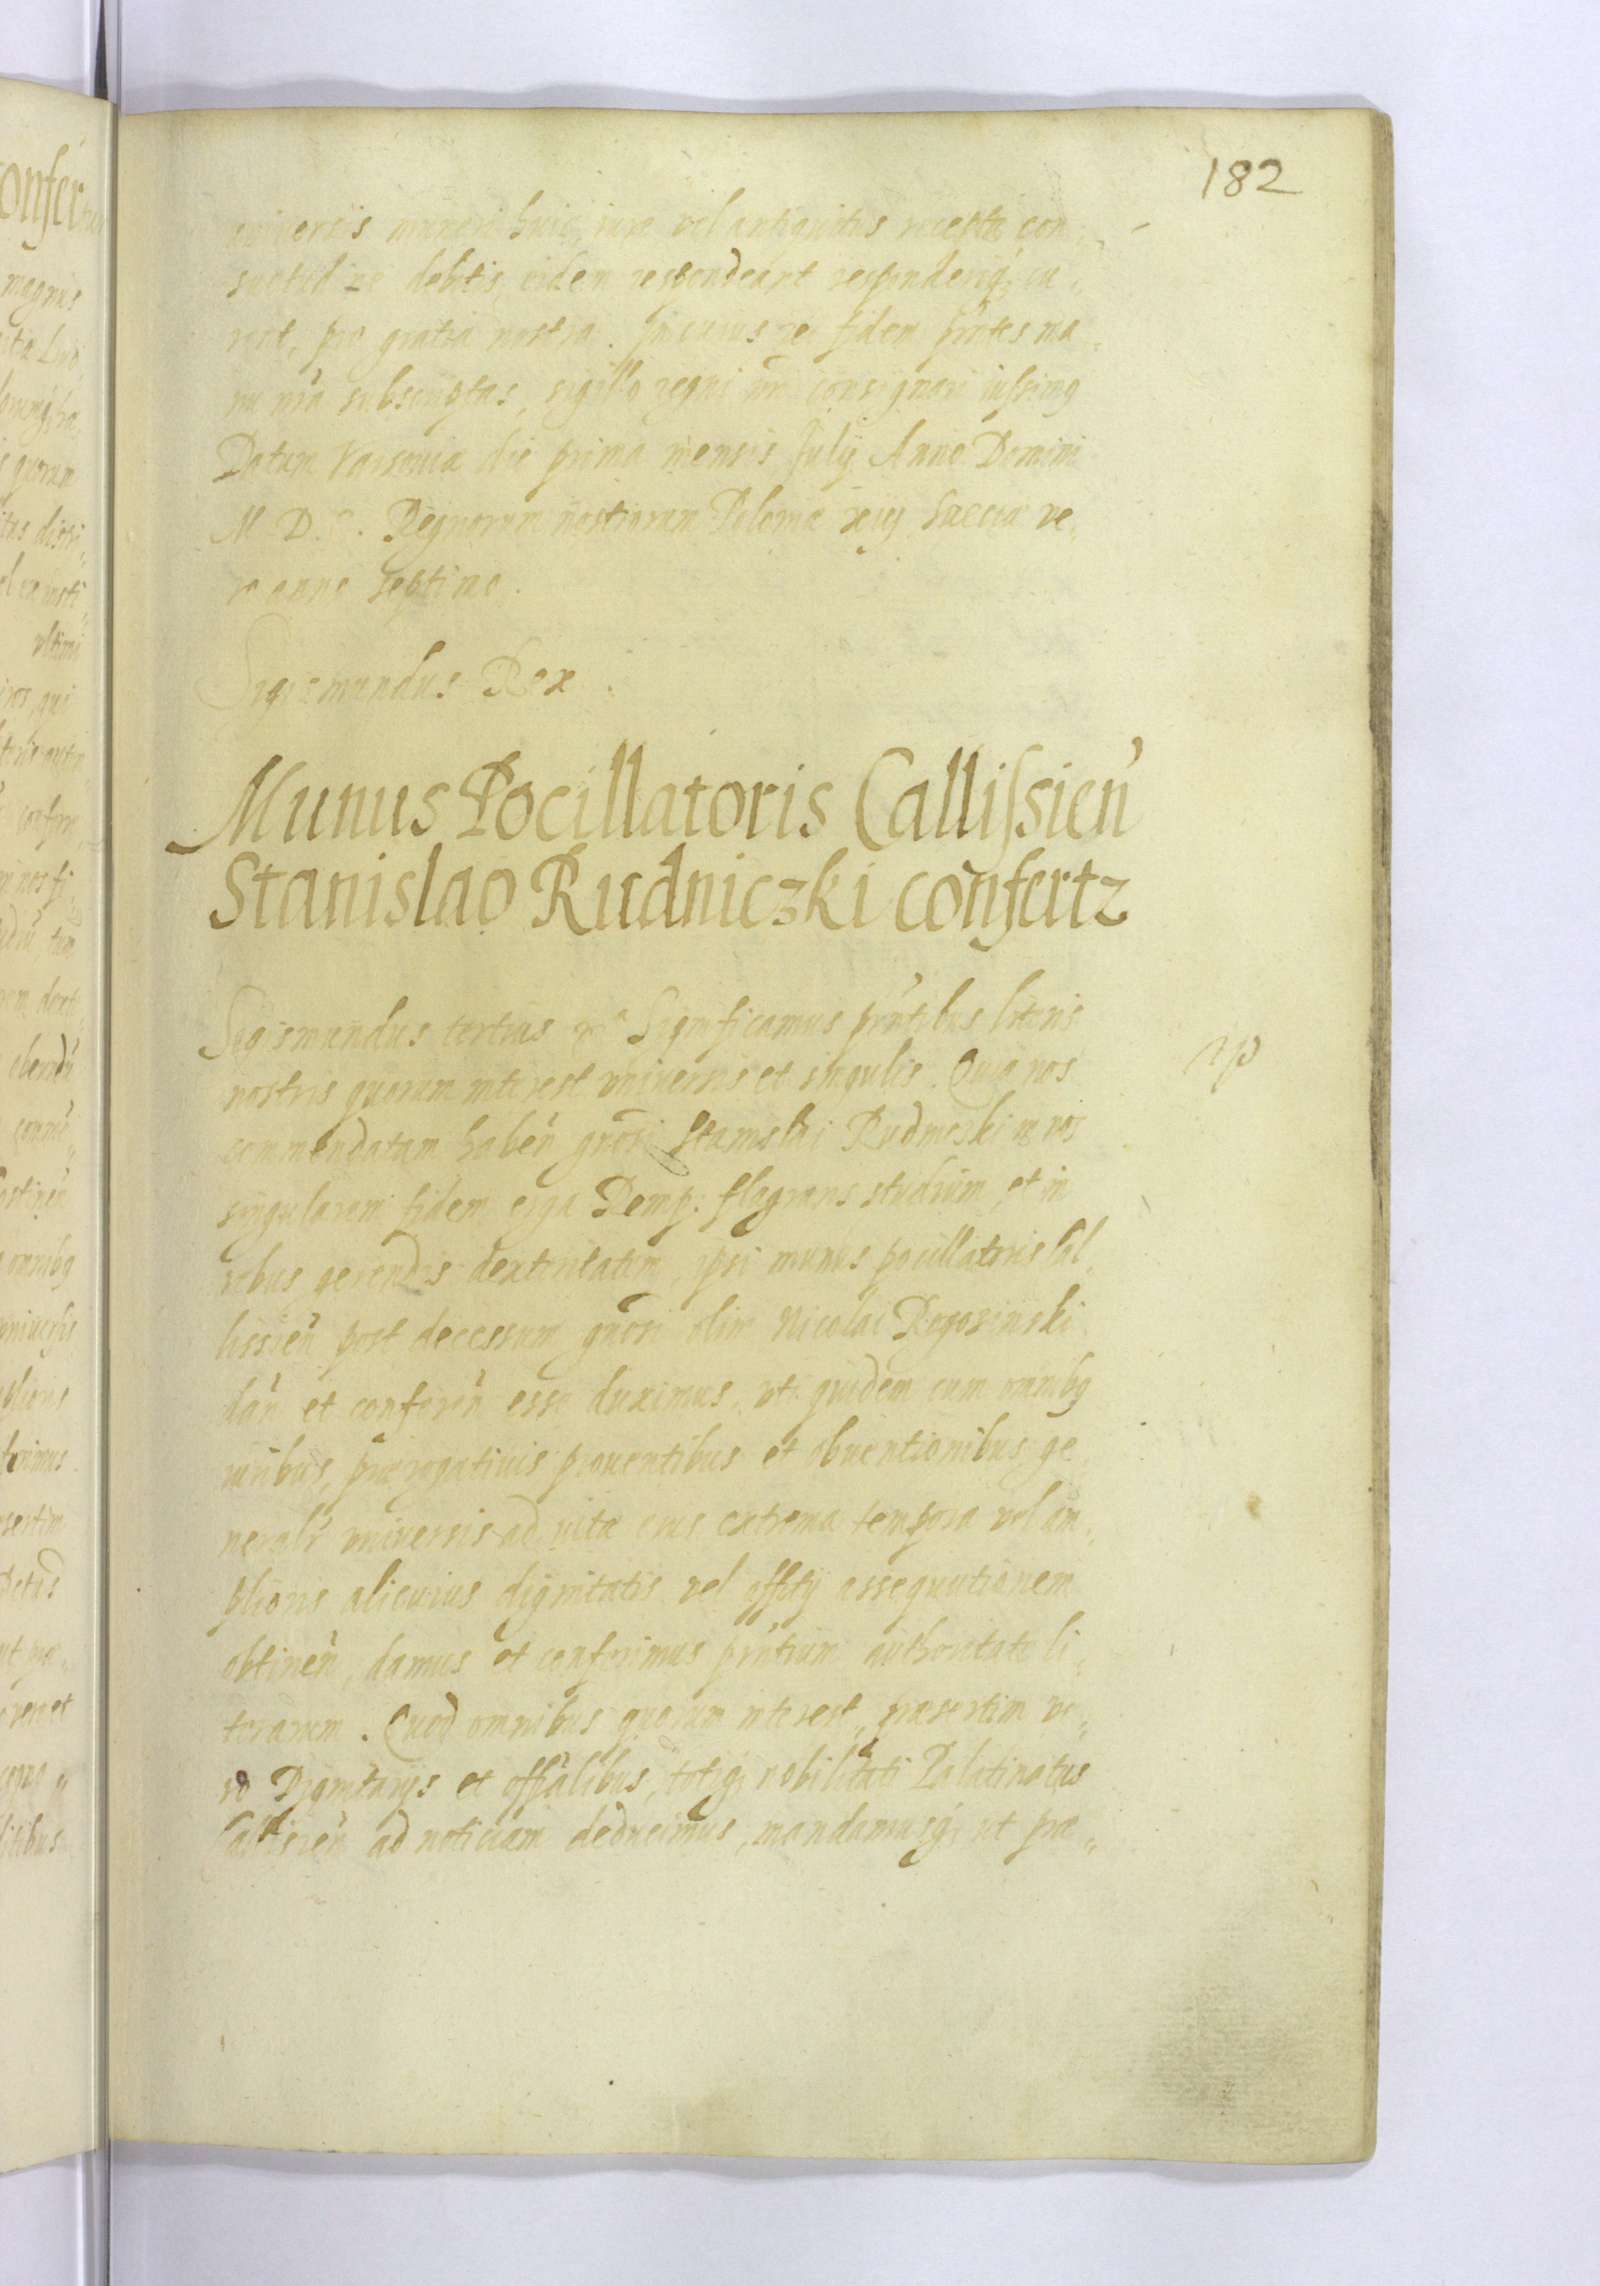 182
universis muneri huic iure vel antiquitus recepta con„
suetudine debitis eidem respondeant responderiq; cu„
rent, pro gratia nostra. In cuius re fidem prn̄tes ma„
nu nr̄a subscriptas, sigillo regni nr̄i consignari iussimq
Datum Varsovia die prima mensis Julij Anno Domini
M. D. C. Regnorum nostrorum Polonia xiij Suecia ve„
ro anno septimo.
Sigismundus Rex
Munus Pocillatoris Callissień
Stanislao Rudniczki confertz
Sigismundus tertius Significamus prn̄tibus literis
nostris quorum interest vniversis et singulis. Quia nos
commendatam habeń gn̄osi Stanislai Rudnicski in nos
singularem fidem erga Remp: flagrans studium, et in
rebus gerendis dexteritatem, ipsi munus pocillatoris Cal„
lissień post decessum gn̄osi olim Nicolai Rogozinski
dań et confereń esse duximus, uti quidem cum omnibq
iuribus, prærogativis proventibus et obventionibus ge„
neralr̄ vniversis ad vita eius extrema tempora vel am„
plioris alicuius dignitatis vel offitij assequutionem
obtineń, damus et conferimus prn̄tium authoritate li„
terarum. Quod omnibus quorum interest, præsertim ve„
ro Dignitarijs et offi͞alibus, totiq; nobilitati Palatinatus
Callissień ad noticiam deducimus, mandamusq; ut præ„